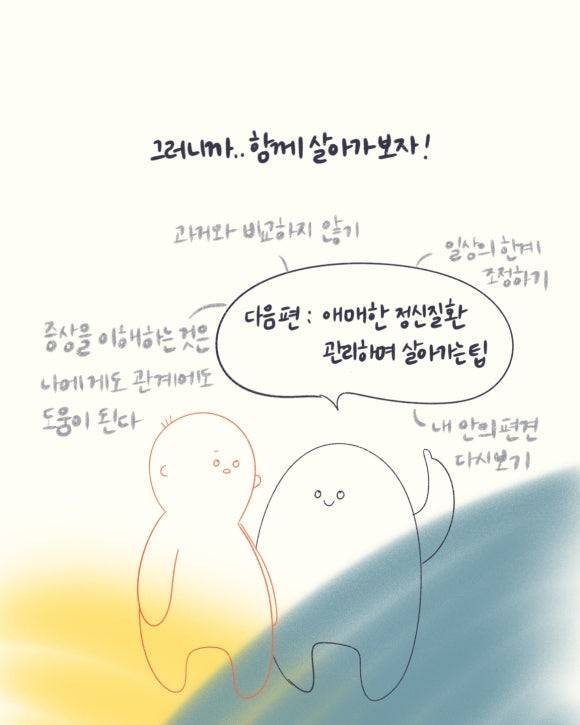 그러니까.. 함께 살아가보자!
과거와 비교하지 않기
일상의 한계
조정하기
다음편 : 애매한 정신질환
관리하며 살아가는 팁
증상을 이해하는 것은
나에게도 관계에도
도움이 된다
내 안의 편견
다시보기